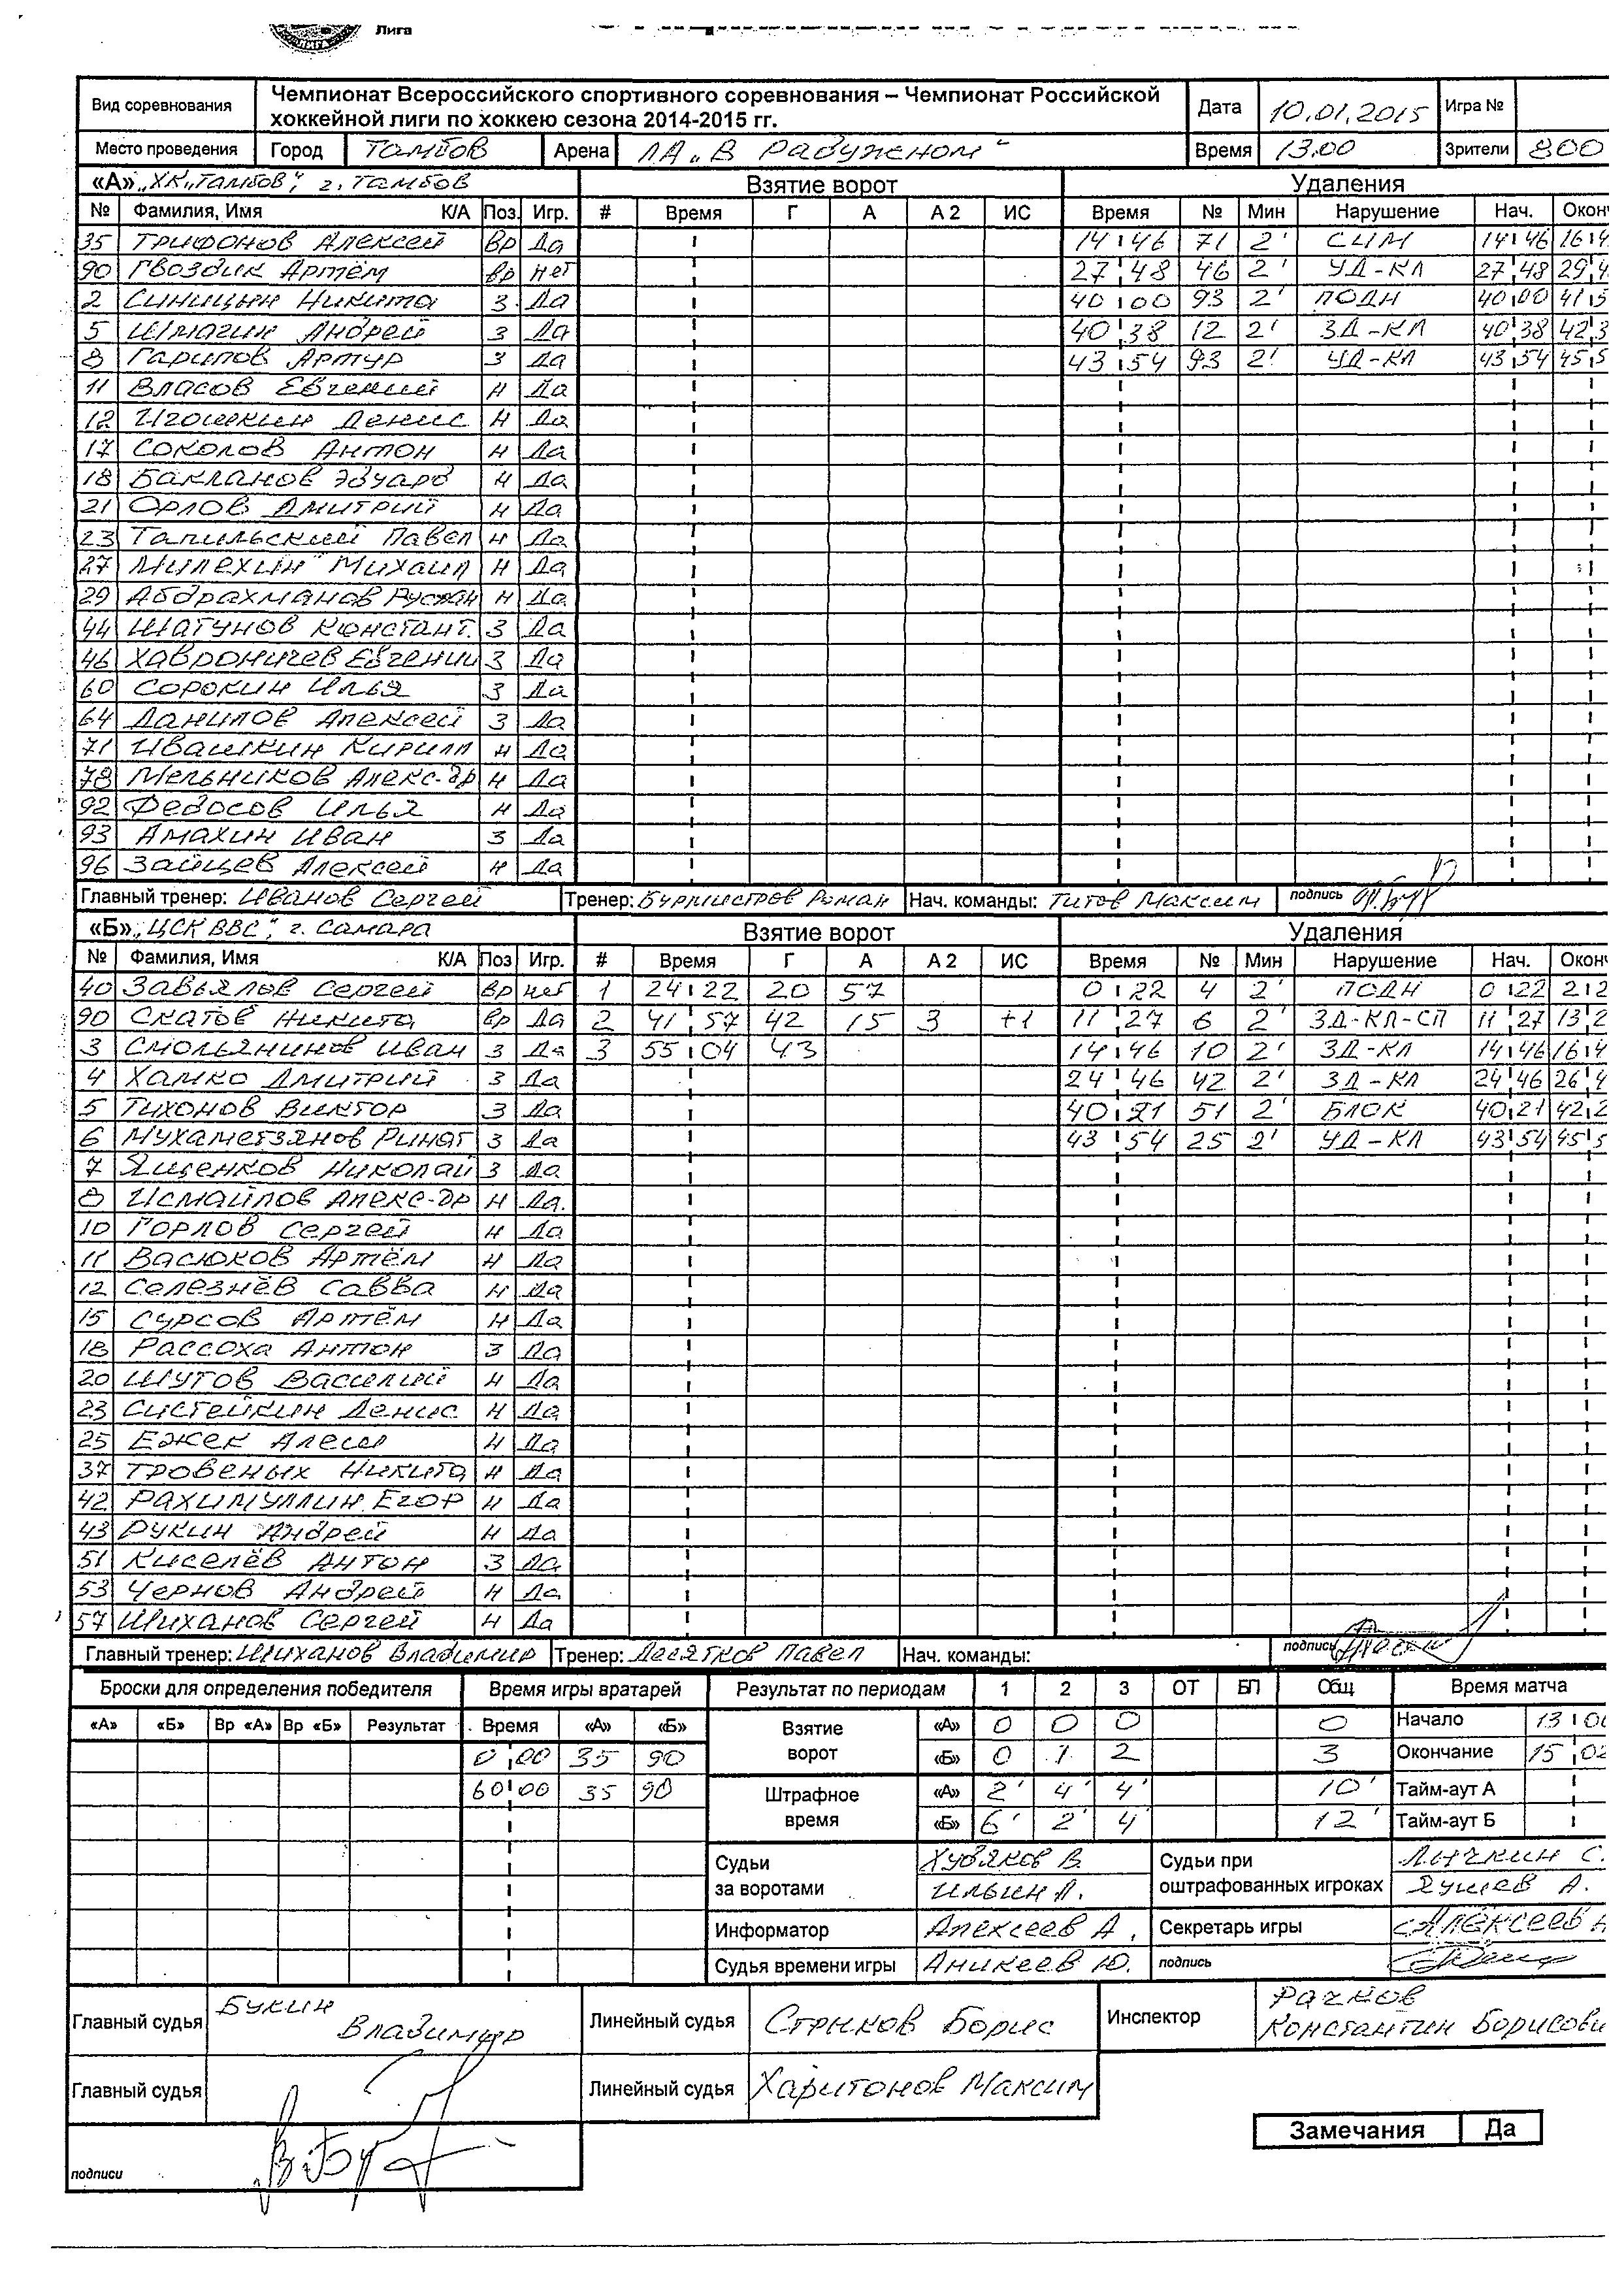 Лига
Вид соревнования Чемпионат Всероссийского спортивного соревнования – Чемпионат Российской хоккейной лиги по хоккею сезона 2014-2015 гг. Дата 10.01.2015 Игра №
Место проведения Город Тамбов Арена ЛА „В Радужном" Время 13.00 Зрители 800
«А» „ХК „Тамбов", г. Тамбов Взятие ворот Удаления
№ Фамилия, Имя К/А Поз. Игр. # Время Г А А 2 ИС Время № Мин Нарушение Нач. Оконч
35 Трифонов Алексей Вр Да 14 46 71 2' СИМ 14 46 16 4
90 Гвоздик Артём Вр нет 27 48 46 2' УД-КЛ 27 48 29 4
2 Синицын Никита З Да 40 00 93 2' ПОДН 40 00 41 5
5 Шмагин Андрей З Да 40 38 12 2' ЗД-КЛ 40 38 42 3
8 Гарипов Артур З Да 43 54 93 2' УД-КЛ 43 54 45 5
11 Власов Евгений Н Да
12 Игошкин Денис Н Да
17 Соколов Антон Н Да
18 Бакланов Эдуард Н Да
21 Орлов Дмитрий Н Да
23 Тапильский Павел Н Да
27 Милехин Михаил Н Да
29 Абдрахманов Руслан Н Да
44 Шатунов Констант. З Да
46 Хаврончев Евгений З Да
60 Сорокин Илья З Да
64 Данилов Алексей З Да
71 Ивашкин Кирилл Н Да
78 Мельников Алекс-др Н Да
92 Федосов Илья Н Да
93 Амахин Иван З Да
96 Зайцев Алексей Н Да
Главный тренер: Иванов Сергей Тренер: Бурмистров Роман Нач. команды: Титов Максим подпись
«Б» „ЦСК ВВС", г. Самара Взятие ворот Удаления
№ Фамилия, Имя К/А Поз Игр. # Время Г А А 2 ИС Время № Мин Нарушение Нач. Оконч
40 Завьялов Сергей Вр нет 1 24 22 20 57 0 22 4 2' ПОДН 0 22 2 2
90 Скатов Никита Вр Да 2 41 57 42 15 3 +1 11 27 6 2' ЗД-КЛ-СП 11 27 13 2
3 Смольянинов Иван З Да 3 55 04 43 14 46 10 2' ЗД-КЛ 14 46 16 4
4 Хамко Дмитрий З Да 24 46 42 2' ЗД-КЛ 24 46 26 4
5 Тихонов Виктор З Да 40 21 51 2' БЛОК 40 21 42 2
6 Мухаметзянов Ринат З Да 43 54 25 2' УД-КЛ 43 54 45 5
7 Ященков Николай З Да
8 Исмайлов Алекс-др Н Да.
10 Горлов Сергей Н Да
11 Васюков Артём Н Да
12 Селезнёв Савва Н Да
15 Сурсов Артём Н Да
18 Рассоха Антон З Да
20 Шутов Василий Н Да
23 Систейкин Денис Н Да
25 Ежек Алеш Н Да
37 Тровеных Никита Н Да
42 Рахимуллин Егор Н Да
43 Рукин Андрей Н Да
51 Киселёв Антон З Да
53 Чернов Андрей Н Да
57 Шиханов Сергей Н Да
Главный тренер: Шиханов Владимир Тренер: Десятков Павел Нач. команды: подпись
Броски для определения победителя Время игры вратарей Результат по периодам 1 2 3 ОТ БП Общ Время матча
«А» «Б» Вр «А» Вр «Б» Результат Время «А» «Б» Взятие ворот «А» 0 0 0 0 Начало 13 00
0 00 35 90 «Б» 0 1 2 3 Окончание 15 02
60 00 35 90 Штрафное время «А» 2' 4' 4' 10' Тайм-аут А
«Б» 6' 2' 4' 12' Тайм-аут Б
Судьи за воротами Худяков В. Судьи при оштрафованных игроках Лычкин С.
Ильин А. Яушев А.
Информатор Алексеев А. Секретарь игры Алексеев
Судья времени игры Аникеев Ю. подпись
Главный судья Букин Владимир Линейный судья Стрыков Борис Инспектор Рачков Константин Борисови
Главный судья Линейный судья Харитонов Максим
Замечания Да
подписи